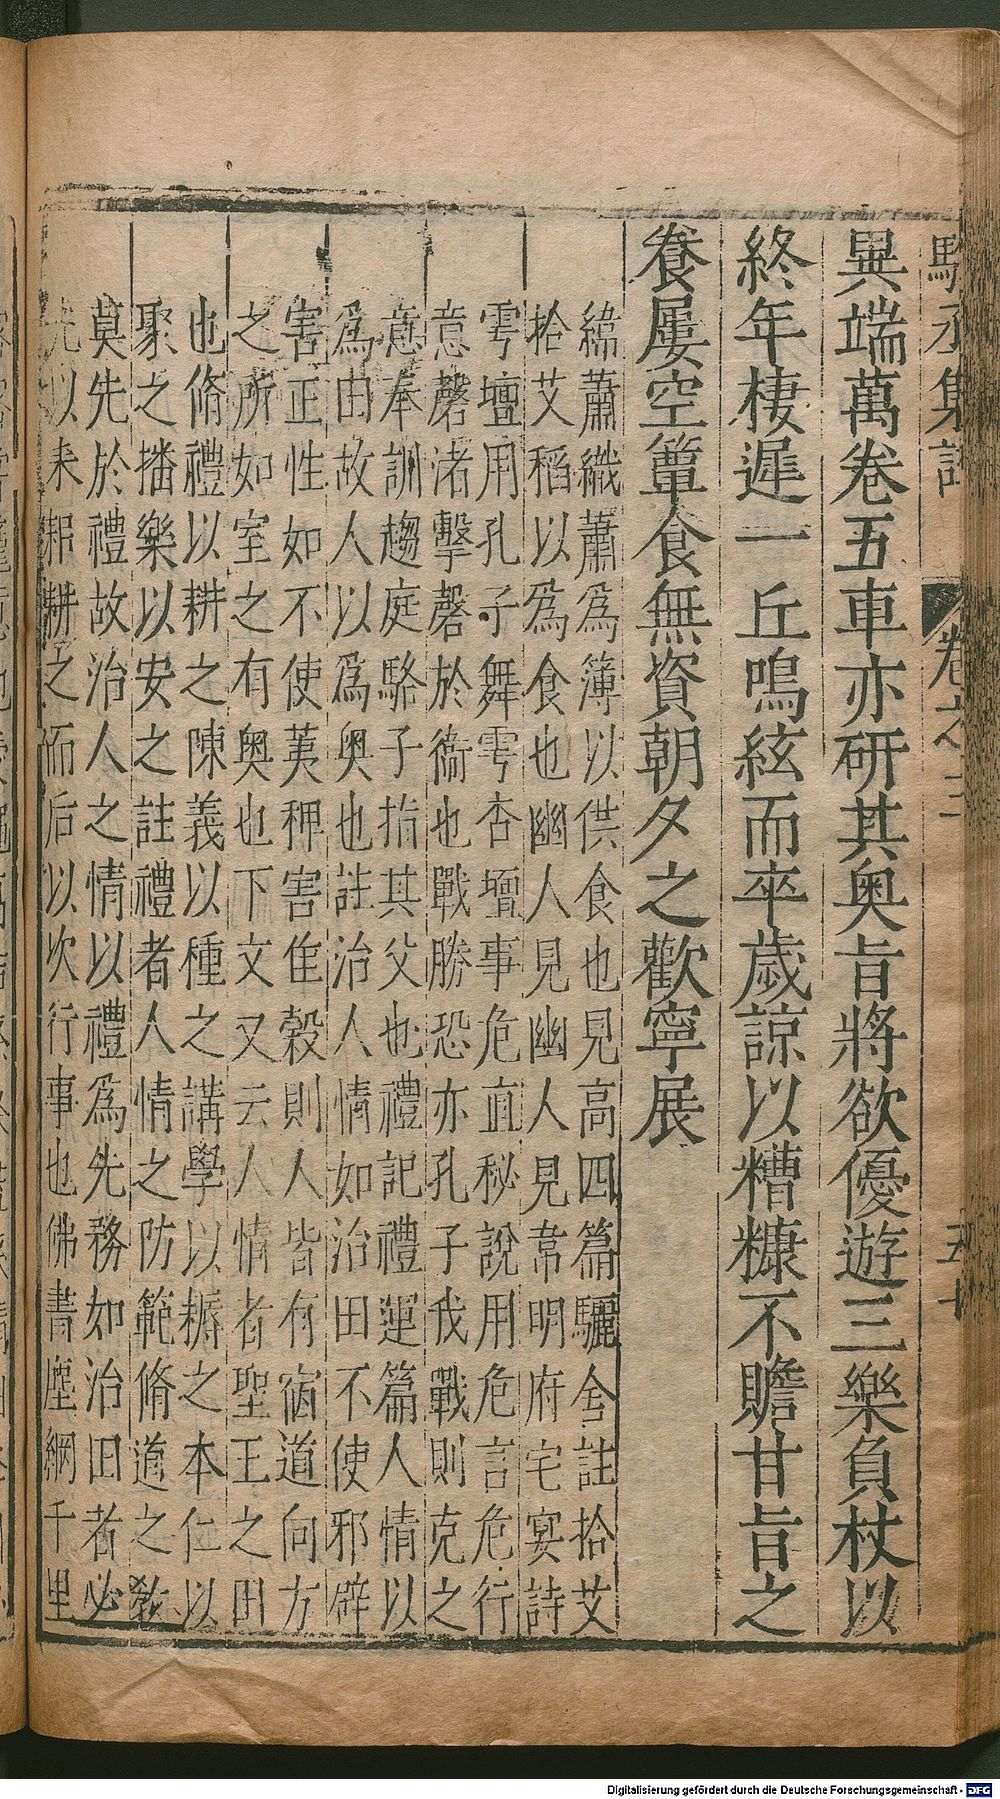 駱丞集註 卷之二
異端萬卷五車亦研其奥旨將欲優遊三樂負杖以
終年棲遲一丘鳴絃而卒歲諒以糟糠不贍甘旨之
養屢空簞食無資朝夕之歡寧展
緯蕭織蕭爲簿以供食也見高四篇驪舍註拾艾
拾艾稻以爲食也幽人見幽人見常明府宅宴詩
雩壇用孔子舞雩杏壇事危直秘說用危言危行
意磬渚擊磬於衞也戰勝恐亦孔子我戰則克之
意奉訓趨庭駱子指其父也禮記禮運篇人情以
爲田故人以爲奥也註治人情如治田不使邪辟
害正性如不使荑稗害隹穀則人皆有宿道向方
之所如室之有奥也下文又云人情者聖王之田
也脩禮以耕之陳義以種之講學以耨之本仁以
聚之播樂以安之註禮者人情之防範脩道之教
莫先於禮故治人之情以禮爲先務如治田者必
先以耒耜耕之而后以次行事也佛書塵網千里
Digitalisierung gefördert durch die Deutsche Forschungsgemeinschaft - DFG